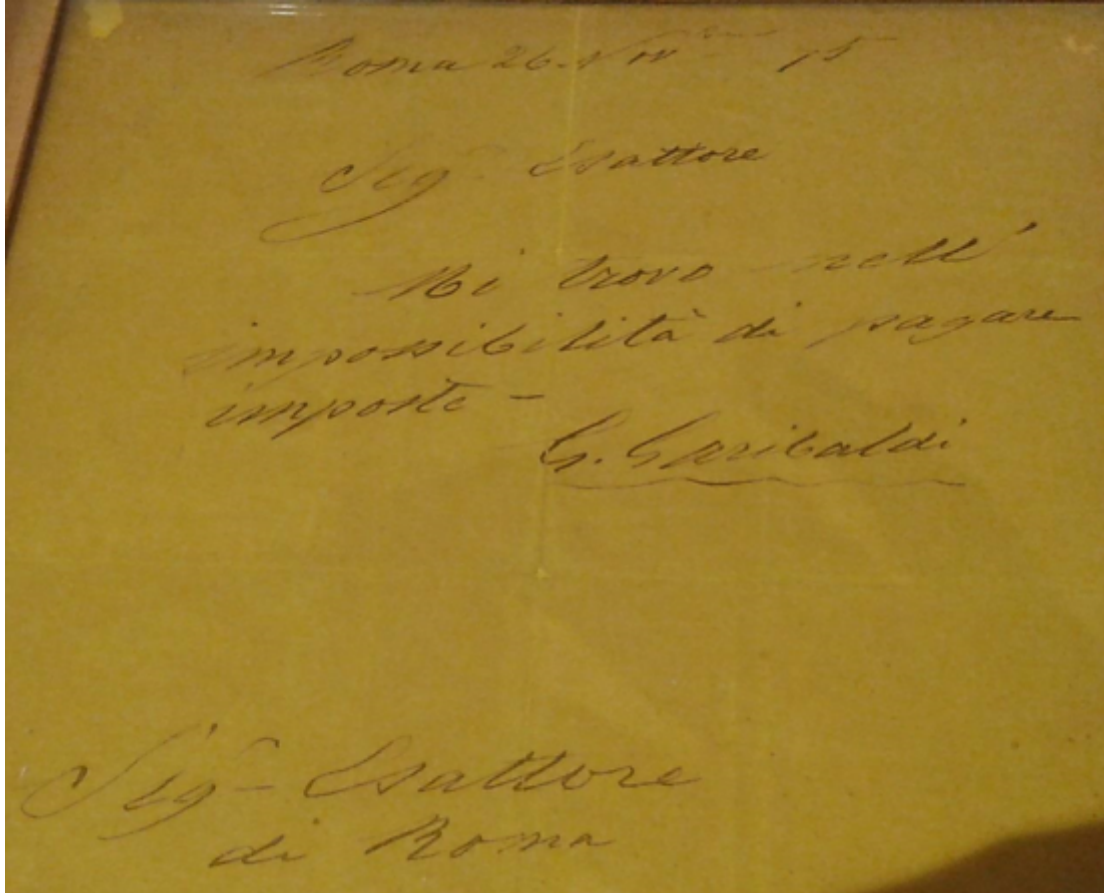 Roma 26. Nov.bre 75
Sigr Esattore
Mi trovo nell'
impossibilità di pagare
imposte -
G. Garibaldi
Sigr Esattore
di Roma